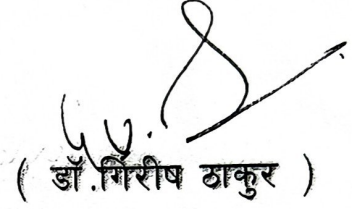 ( डॉ.गिरीष ठाकुर )